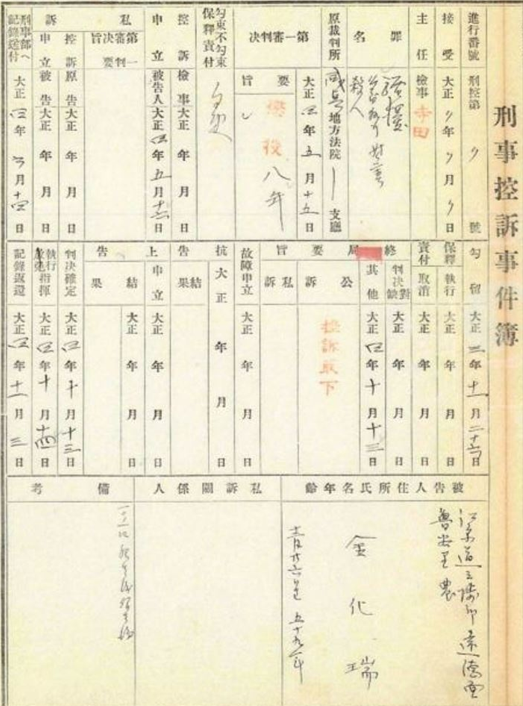 刑事控訴事件簿
進行番號 刑控第 號
接受 大正 年 月 日
主任 檢事 寺田
罪名 殺人
原裁判所 咸興地方法院 支廳
第一審判決 大正四年五月十五日
要旨 懲役八年
勾束不勾束
保釋責付
控訴申立 檢事 大正 年 月 日
被告人 大正四年五月十六日
私訴 第一審判決要旨
控訴申立 原告 大正 年 月 日
被告 大正 年 月 日
刑事部ヘ記錄送付 大正四年 月十四日
勾留 大正三年十一月二十六日
保釋責付 執行 大正 年 月 日
取消 大正 年 月 日
終局 判決對缺 大正 年 月 日
其他 大正四年十月十三日
要旨 公訴 控訴取下
私訴
故障申立 大正 年 月 日
抗告 大正 年 月 日
結果
上告 申立 大正 年 月 日
結果 大正 年 月 日
判決確定 大正四年十月十三日
執行指揮 大正四年十月十四日
記錄返還 大正四年十一月三日
被告人住所氏名年齡
金化瑞
五十九年
私訴關係人
備考